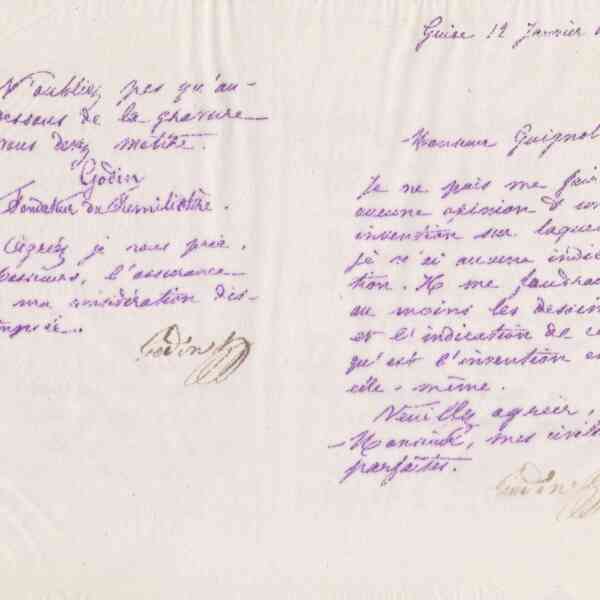 N'oubliez pas qu'au-
dessous de la gravure
vous devez mettre.
Godin
Fondateur du Familistère.
Agréez je vous prie,
Messieurs, l'assurance
ma considération dis-
Godin
Guise 12 Janvier
Monsieur Guignol
Je ne puis me faire
aucune opinion d'un
invention sur laque
je n'ai aucune indic
tion. Il me faudra
au moins les dessins
et l'indication de ce
qu'est l'invention e
elle-même.
Veuillez agréer,
Monsieur, mes civil
parfaites.
Godin